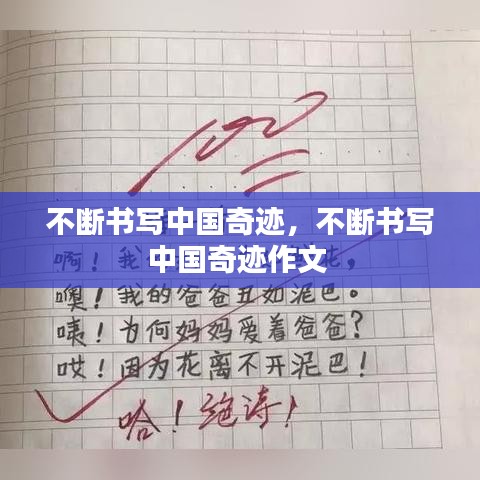 100
不断书写中国奇迹，不断书写
中国奇迹作文
啊！我
噢！我的爸爸丑如泥巴。
咦！为何妈妈爱着爸爸？
哎！因为花离不开泥巴！
哈！绝诗！